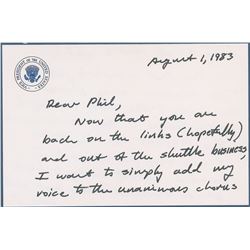 VICE PRESIDENT OF THE UNITED STATES
August 1, 1983
Dear Phil,
Now that you are
back on the links (hopefully)
and out of the shuttle BUSINESS,
I want to simply add my
voice to the unanimous chorus